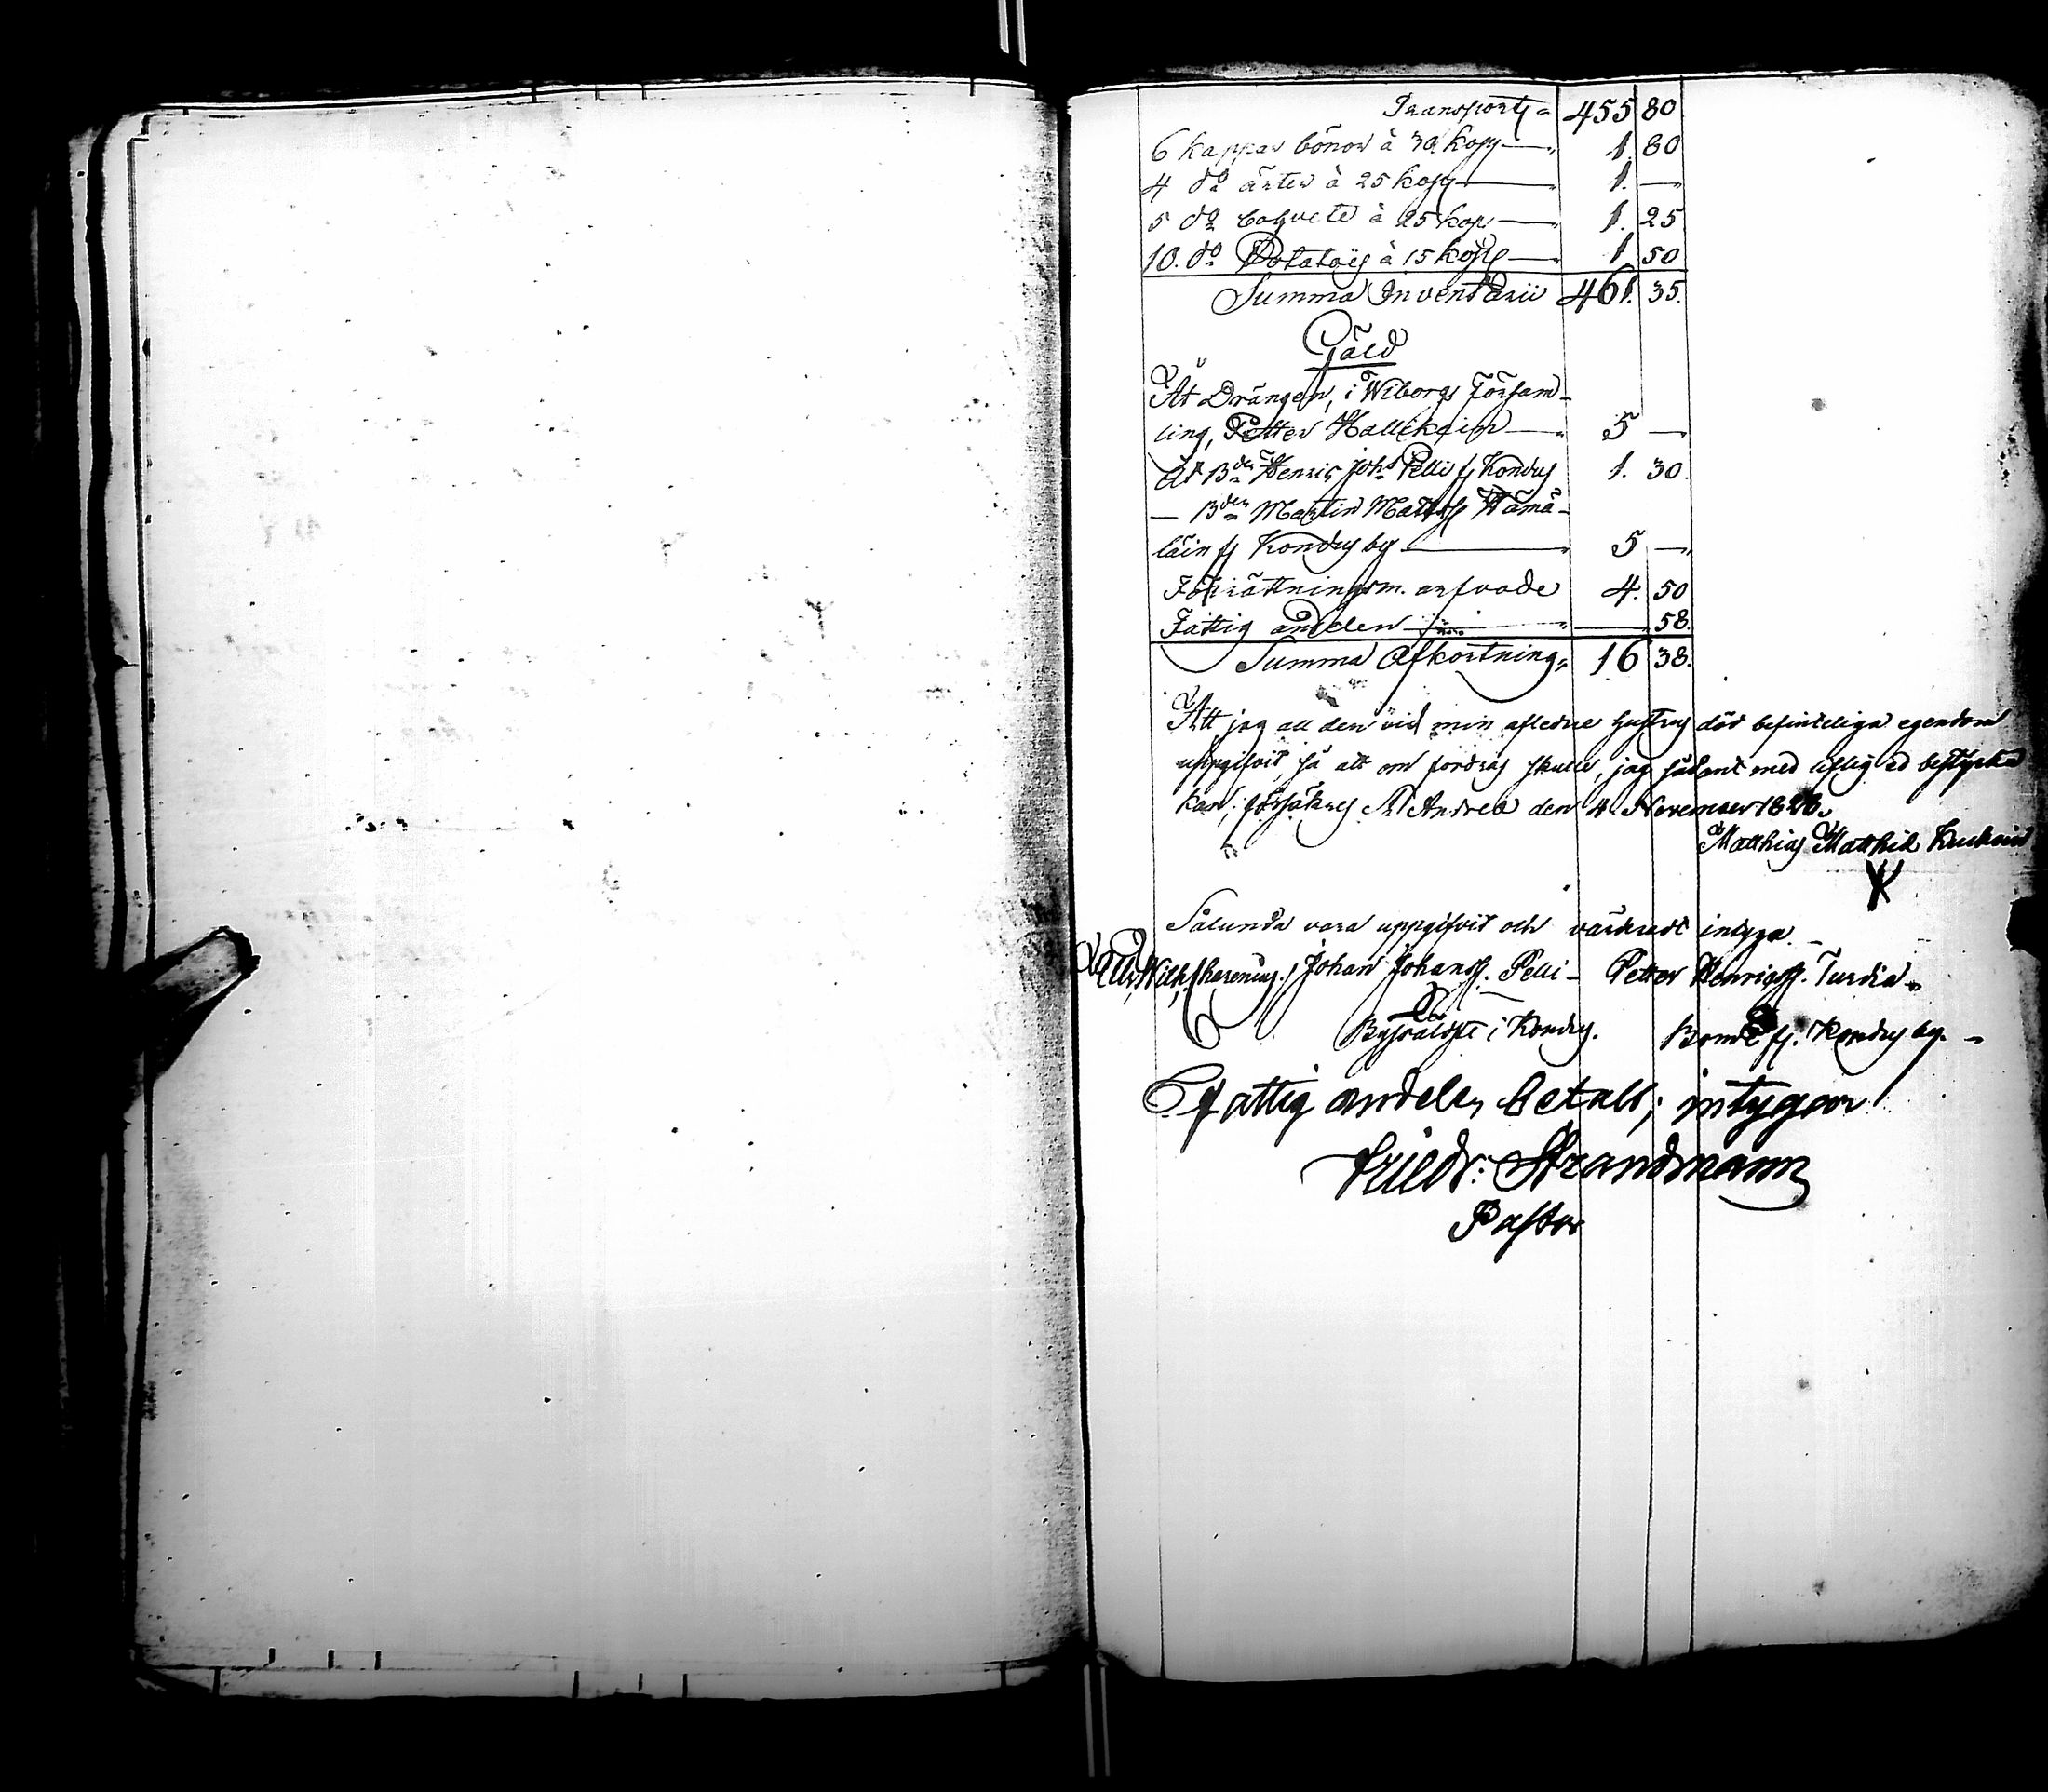 Transport 455 80
6 kappar bönor à 30 kop 1. 80
4 do ärter à 25 kop 1. —
5 do bohvete à 25 kop 1. 25
10. do Potatoës à 15 kop 1 50
Summa Inventarii 461. 35.
Gäld
Åt Drängen, i Wiborgs Försam-
ling, Petter Hallikain 5 —
Åt Bden Henric Johs Pelli fr Kondus 1. 30.
— Bden Martin Matts Hämä-
läin fr Kondus by 5 —
Förrättningsm. arfvode 4. 50
Fattig andelen — 58.
Summa Afkortning 16 38.
Att jag all den vid min afledne hustrus död befinteliga egendom
uppgifvit, så att om fordras skulle, jag sådant med liflig ed bestyrka
kan, försäkras St Andreæ den 4 November 1828.
Matthias Matthiæ
Sålunda vara uppgifvit och värderadt intyga
Johan Johanss. Pelli - Petter Henricss. Turdia
Byfåldste i Kondus. Bonde fr. Kondus by.
Fattig andelen betalt; intygar
Friedr: Strandmann
Pastor